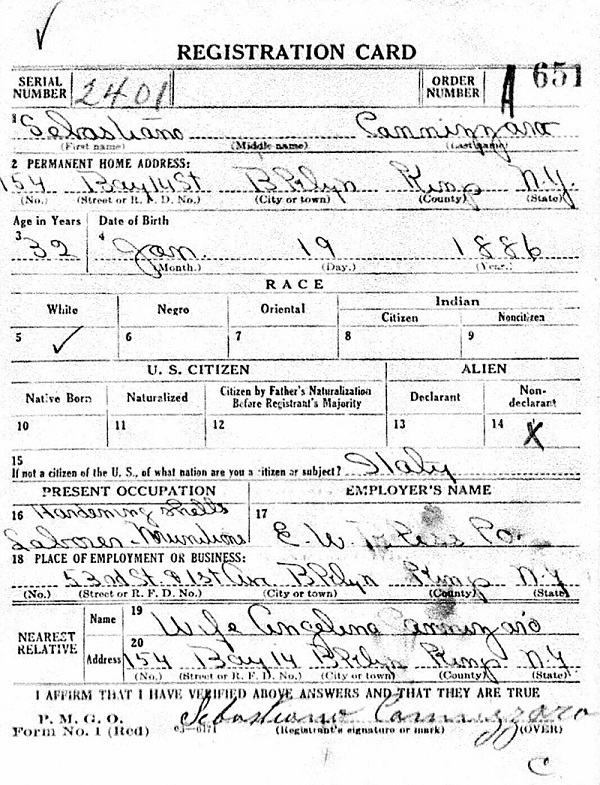 REGISTRATION CARD
SERIAL NUMBER 2401 ORDER NUMBER A 651
1 Sebastiano Cannizzaro
(First name) (Middle name) (Last name)
2 PERMANENT HOME ADDRESS:
154 Bay 14 St Bklyn Kings N.Y.
(No.) (Street or R. F. D. No.) (City or town) (County) (State)
Age in Years Date of Birth
3 32 4 Jan. 19 1886
(Month.) (Day.) (Year.)
RACE
White Negro Oriental Indian
Citizen Noncitizen
5 ✓ 6 7 8 9
U. S. CITIZEN ALIEN
Native Born Naturalized Citizen by Father's Naturalization Before Registrant's Majority Declarant Non-declarant
10 11 12 13 14 X
15
If not a citizen of the U. S., of what nation are you a citizen or subject? Italy
PRESENT OCCUPATION EMPLOYER'S NAME
16 Hardening shells 17
Laborer E. W. Co.
18 PLACE OF EMPLOYMENT OR BUSINESS:
53rd St & 1st Ave Bklyn Kings N.Y
(No.) (Street or R. F. D. No.) (City or town) (County) (State)
NEAREST RELATIVE
Name 19 Wife Angelina Cannizzaro
20
Address 154 Bay 14 Bklyn Kings N.Y
(No.) (Street or R. F. D. No.) (City or town) (County) (State)
I AFFIRM THAT I HAVE VERIFIED ABOVE ANSWERS AND THAT THEY ARE TRUE
P. M. G. O.
Form No. 1 (Red) 03-6171 Sebastiano Cannizzaro
(Registrant's signature or mark) (OVER)
C